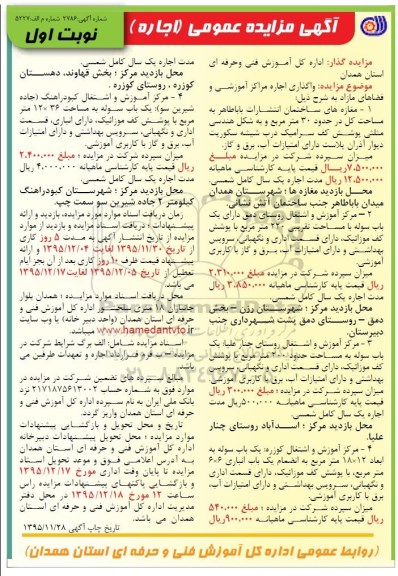 آگهی مزایده عمومی (اجاره)
شماره آگهی: ۲۷۸۶ شماره م الف: ۵۲۲۷
نوبت اول
مزایده گذار: اداره کل آموزش فنی وحرفه ای
استان همدان
موضوع مزایده: واگذاری اجاره مراکز آموزشی و
فضاهای مازاد به شرح ذیل:
۱ – مغازه های ساختمان انتشارات باباطاهر به
مساحت کل در حدود ۳۰ متر مربع و به شکل هندسی
مثلثی پوشش کف سرامیک درب شیشه سکوریت
دیوار آذران پلاست دارای امتیازات آب، برق و گاز.
میزان سپرده شرکت در مزایده مبلغ
۷.۵۰۰.۰۰۰ ریال قیمت پایه کارشناسی ماهیانه
۱۲.۵۰۰.۰۰۰ ریال مدت اجاره یک سال کامل شمسی
محل بازدید مغازه ها: شهرستان همدان
میدان باباطاهر جنب ساختمان آتش نشانی.
۲ – مرکز آموزش و اشتغال روستای دمق دارای یک
باب سوله با مساحت تقریبی ۲۰۰ متر مربع با پوشش
کف موزائیک، دارای قسمت اداری و نگهبانی، سرویس
بهداشتی و دارای امتیازات آب، برق و گاز با کاربری
آموزشی.
میزان سپرده شرکت در مزایده مبلغ ۲.۳۱۰.۰۰۰
ریال قیمت پایه کارشناسی ماهیانه ۳.۸۵۰.۰۰۰ ریال
مدت اجاره یک سال کامل شمسی.
محل بازدید مرکز: شهرستان رزن – بخش
دمق – روستای دمق پشت شهرداری جنب
دبیرستان.
۳ – مرکز آموزش و اشتغال روستای چنار علیا: یک
باب سوله به مساحت حدود ۲۰۰ متر مربع با پوشش
کف موزائیک، دارای قسمت اداری و نگهبانی، سرویس
بهداشتی و دارای امتیازات آب، برق با کاربری آموزشی.
میزان سپرده شرکت در مزایده: مبلغ ۳۰۰.۰۰۰ ریال
قیمت پایه کارشناسی ماهیانه ۵۰۰.۰۰۰ ریال مدت
اجاره یک سال کامل شمسی.
محل بازدید مرکز: اسدآباد روستای چنار
علیا.
۴ – مرکز آموزش و اشتغال کوزره: یک باب سوله به
ابعاد ۱۲×۱۸ متر مربع به انضمام یک باب انباری ۶×۶
متر مربع، با پوشش کف موزائیک، دارای قسمت اداری
و نگهبانی، سرویس بهداشتی و دارای امتیازات آب،
برق با کاربری آموزشی.
میزان سپرده شرکت در مزایده: مبلغ ۵۴۰.۰۰۰
ریال قیمت پایه کارشناسی ماهیانه ۹۰۰.۰۰۰ ریال
مدت اجاره یک سال کامل شمسی.
محل بازدید مرکز: بخش قهاوند، دهستان
کوزره، روستای کوزره.
۴ – مرکز آموزش و اشتغال کبودراهنگ (جاده
شیرین سو): یک باب سوله به مساحت ۳۶×۱۲ متر
مربع با پوشش کف موزائیک، دارای انباری، قسمت
اداری و نگهبانی، سرویس بهداشتی و دارای امتیازات
آب، برق و گاز با کاربری آموزشی.
میزان سپرده شرکت در مزایده: مبلغ ۲.۴۰۰.۰۰۰
ریال قیمت پایه کارشناسی ماهیانه ۴.۰۰۰.۰۰۰ ریال
مدت اجاره یک سال کامل شمسی.
محل بازدید مرکز: شهرستان کبودراهنگ
کیلومتر ۲ جاده شیرین سو سمت چپ.
زمان دریافت اسناد موارد مورد مزایده، بازدید و ارائه
پیشنهادات: دریافت اسناد مزایده و بازدید از موارد
مزایده از تاریخ انتشار آگهی به مدت ۵ روز کاری
از تاریخ ۱۳۹۵/۱۱/۳۰ لغایت ۱۳۹۵/۱۲/۰۴ و ارائه
پیشنهاد قیمت ظرف ۱۰ روز کاری بعد از آن بجز ایام
تعطیل از تاریخ ۱۳۹۵/۱۲/۰۵ لغایت ۱۳۹۵/۱۲/۱۷
می باشد.
محل دریافت اسناد موارد مزایده: همدان بلوار
جانبازان ۱۸ متری سنجر اداره کل آموزش فنی و
حرفه ای استان همدان (واحد دبیر خانه) یا وب سایت
www.hamedantvto.ir میباشد.
اسناد مزایده شامل: الف: برگ شرایط شرکت در
مزایده – ب: فرم قرارداد اجاره و تعهدات طرفین می
باشد.
مبالغ سپرده های تضمین شرکت در مزایده در
موارد فوق به شماره حساب ۲۱۷۱۸۷۵۶۱۳۰۰۲ نزد
بانک ملی ایران به نام سپرده اداره کل آموزش فنی و
حرفه ای استان همدان واریز گردد.
تاریخ و محل تحویل و بازگشایی پیشنهادات
موارد مزایده: محل تحویل پیشنهادات دبیرخانه
اداره کل آموزش فنی و حرفه ای استان همدان
به آدرس اعلامی فوق و موعد تحویل اسناد
مزایده تا پایان وقت اداری مورخ ۱۳۹۵/۱۲/۱۷
و بازگشایی پاکتهای پیشنهادات مزایده راس
ساعت ۱۲ مورخ ۱۳۹۵/۱۲/۱۸ در محل دفتر
مدیریت اداره کل آموزش فنی و حرفه ای استان
همدان می باشد.
تاریخ چاپ آگهی ۱۳۹۵/۱۱/۲۸
(روابط عمومی اداره کل آموزش فنی و حرفه ای استان همدان)